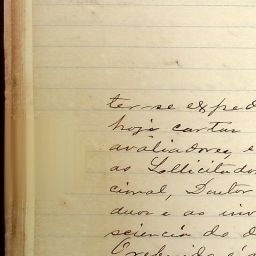 ter-se exped
hoje cartas
avaliadores, e
ao Sollicitado
cional, Doutor
duor e ao inv
sciencia do d